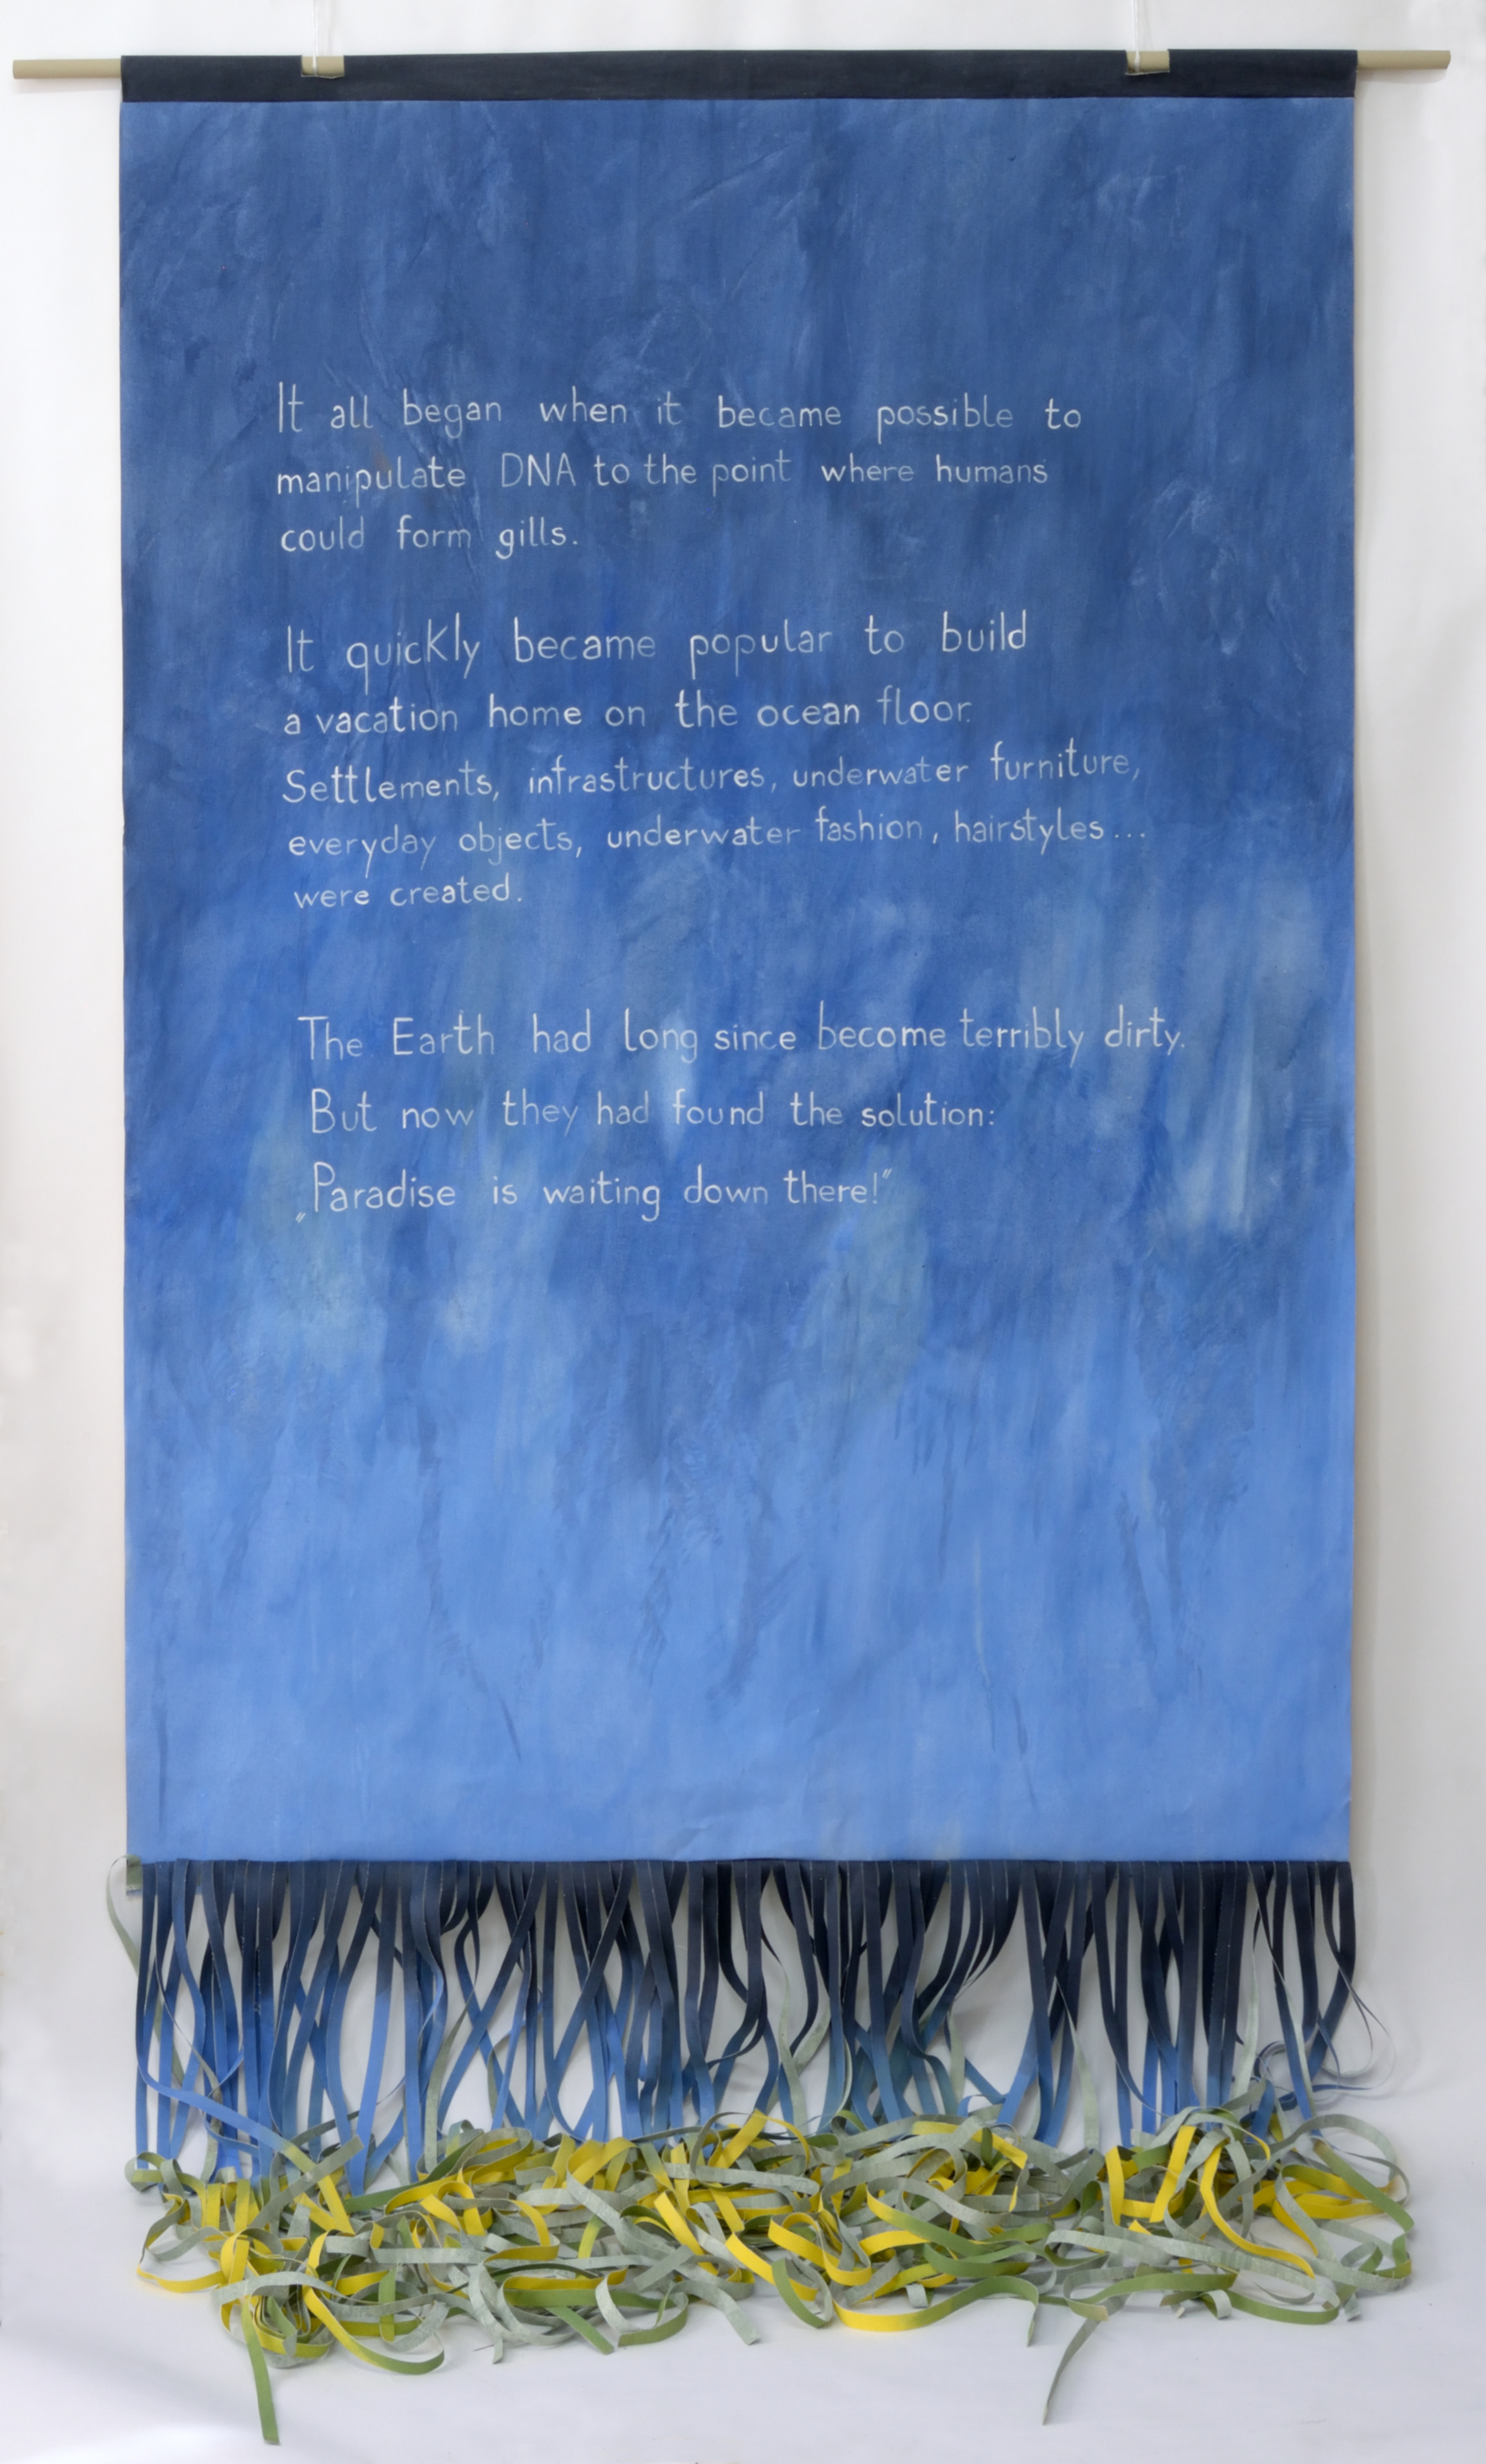 It all began when it became possible to
manipulate DNA to the point where humans
could form gills.
It quickly became popular to build
a vacation home on the ocean floor.
Settlements, infrastructures, underwater furniture,
everyday objects, underwater fashion, hairstyles...
were created.
The Earth had long since become terribly dirty.
But now they had found the solution:
„Paradise is waiting down there!"